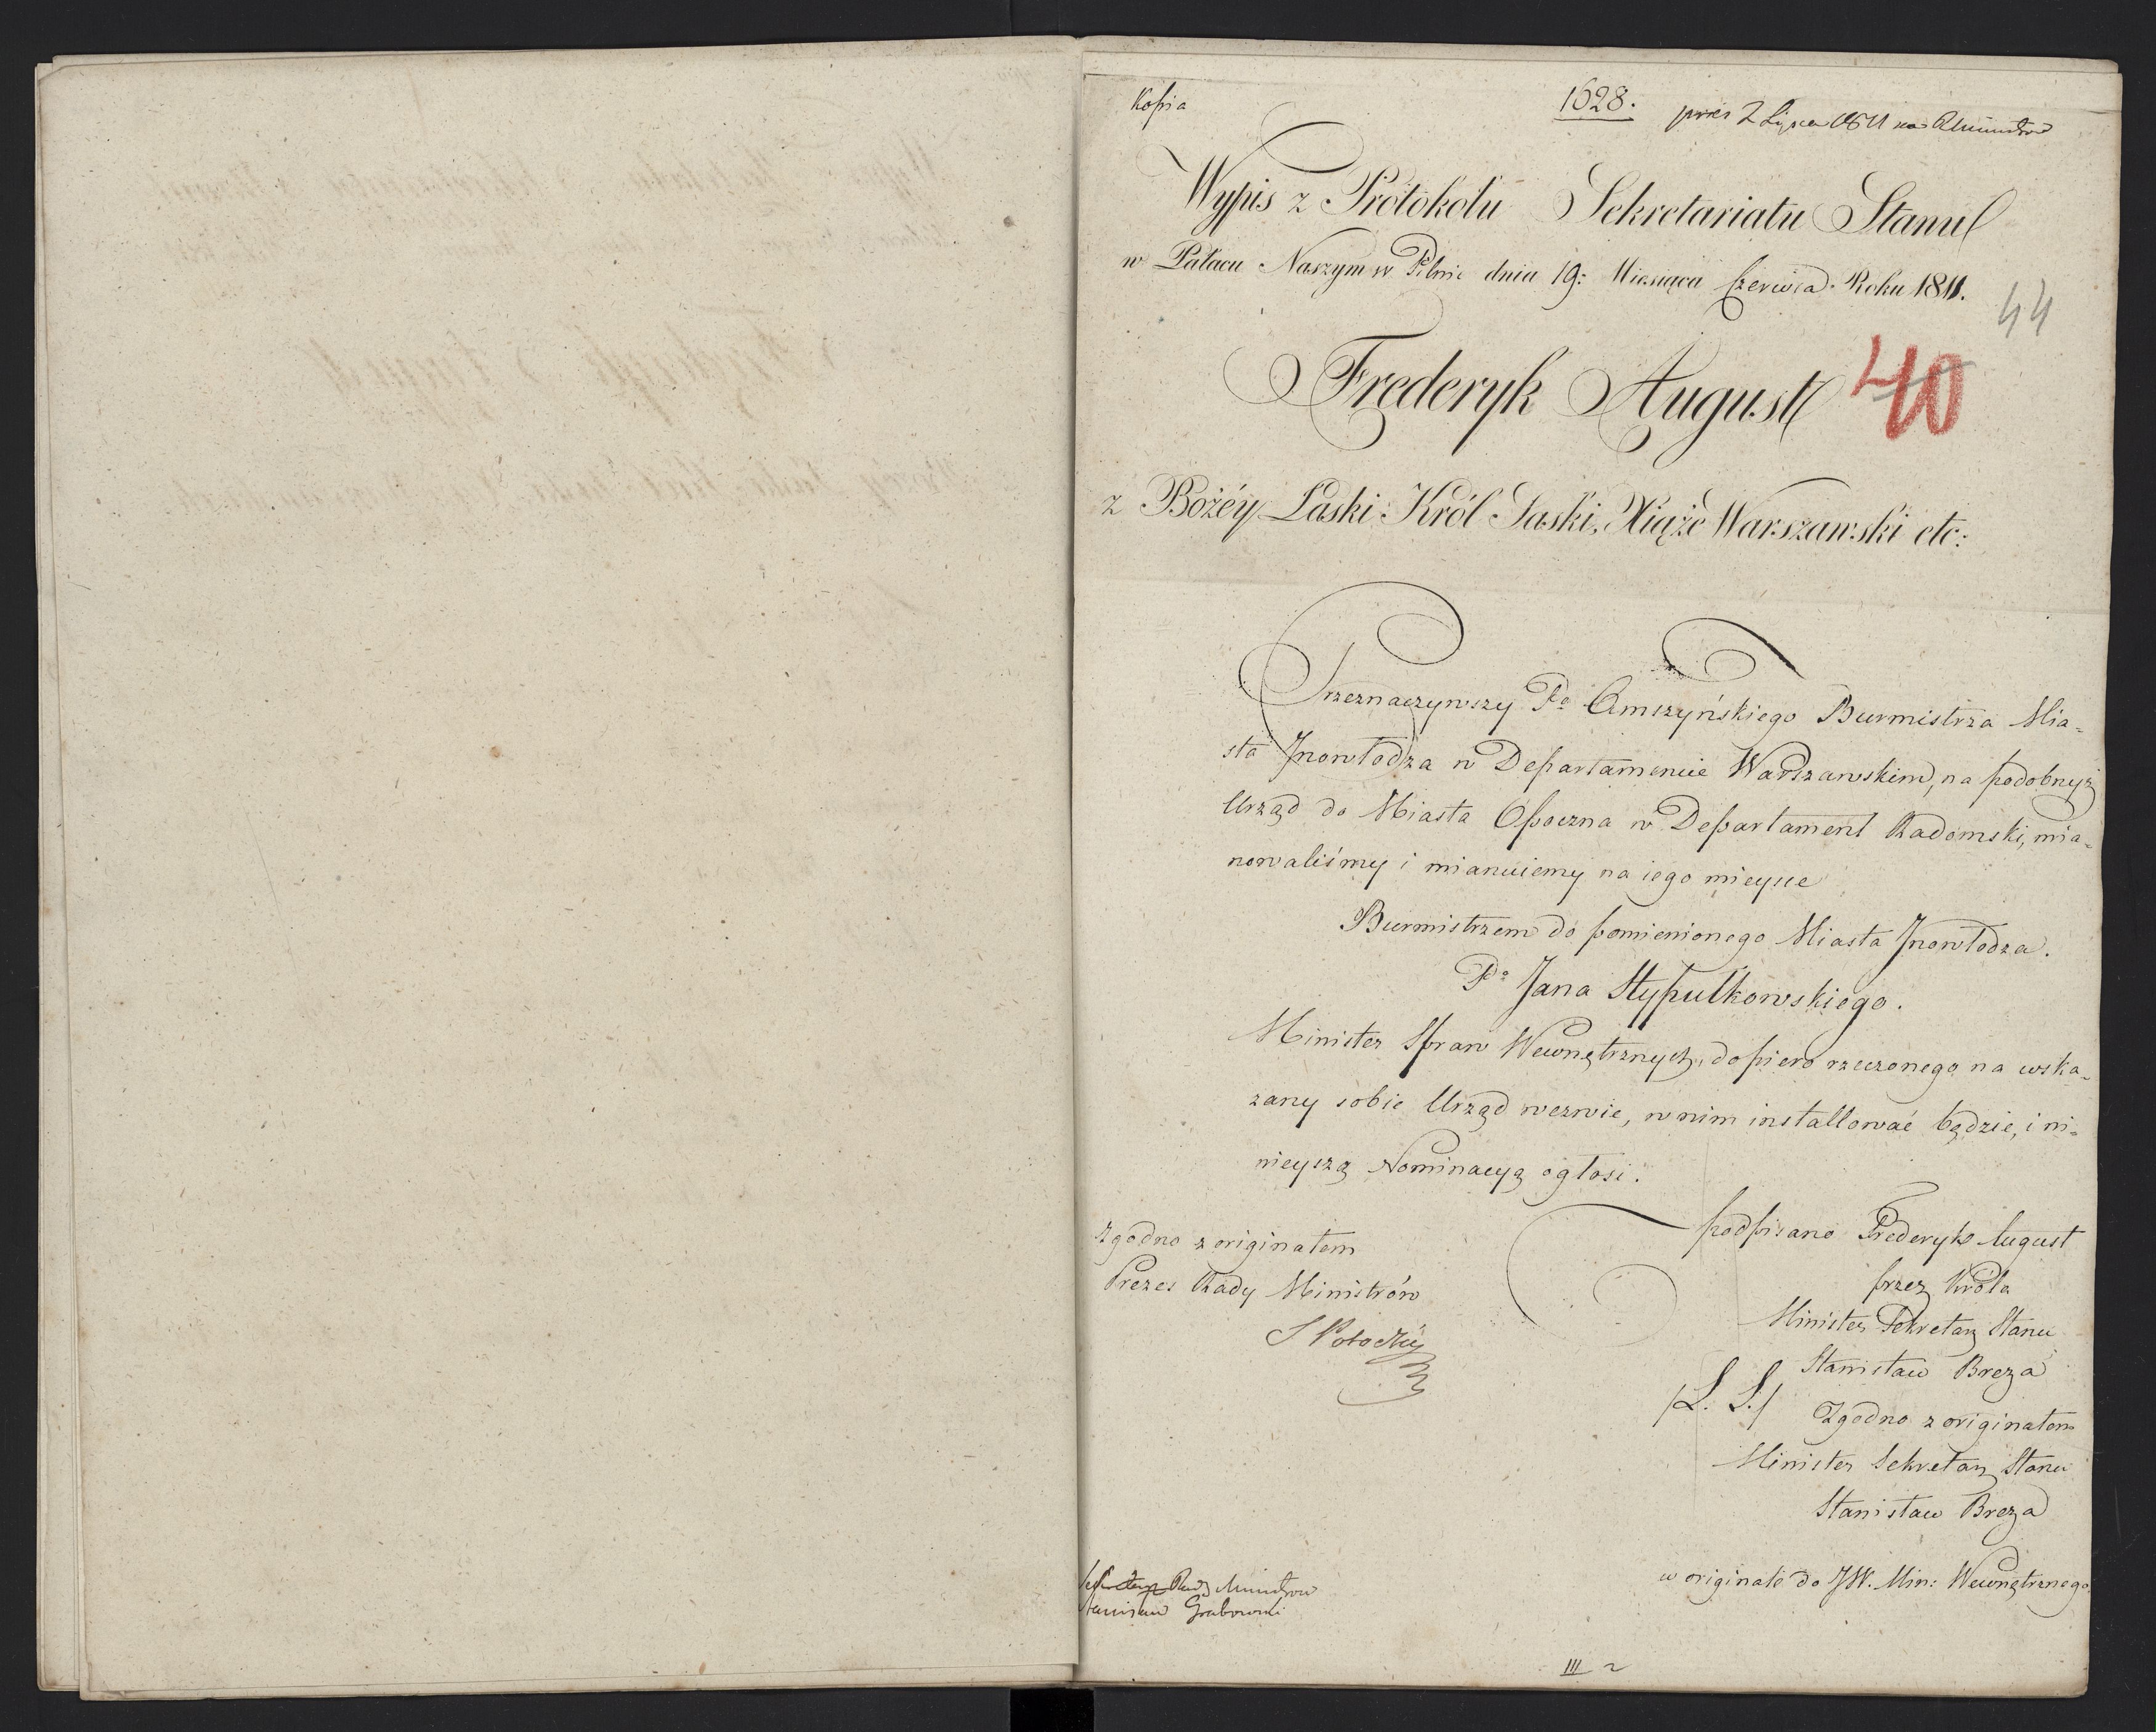 Kopia
1628.
pres 2 Lipca 1811 na R Ministrow
Wypis z Protokołu Sekretariatu Stanu
w Pałacu Naszym w Pilnic dnia 19: Miesiąca Czerwca Roku 1811.
44
40
Frederyk August
z Bożéy Łaski Król Saski, Xiąże Warszawski etc:
Przeznaczywszy Pa Amszyńskiego Burmistrza Mia-
sta Jnowłodza w Departamencie Warszawskim, na podobnyż
Urząd do Miasta Opoczna w Departament Radomski, mia-
nowaliśmy i mianuiemy na iego mieysce
Burmistrzem do pomienionego Miasta Jnowłodza.
Pa Jana Stypułkowskiego.
Minister Spraw Wewnętrznych, dopiero rzeczonego na wska-
zany sobie Urząd wezwie, w nim installować będzie, i ni-
nieyszą Nominacyą ogłosi.
podpisano Frederyk August
przez Króla
Minister Sekretarz Stanu
Stanisław Breza
/L. S./ Zgodno z originałem
Minister Sekretarz Stanu
Stanisław Breza
Zgodno z originałem
Prezes Rady Ministrów
S Potocki
Sekretarz Rady Ministrow
Stanisław Grabowski
w originale do JW. Min: Wewnętrznego
III 2